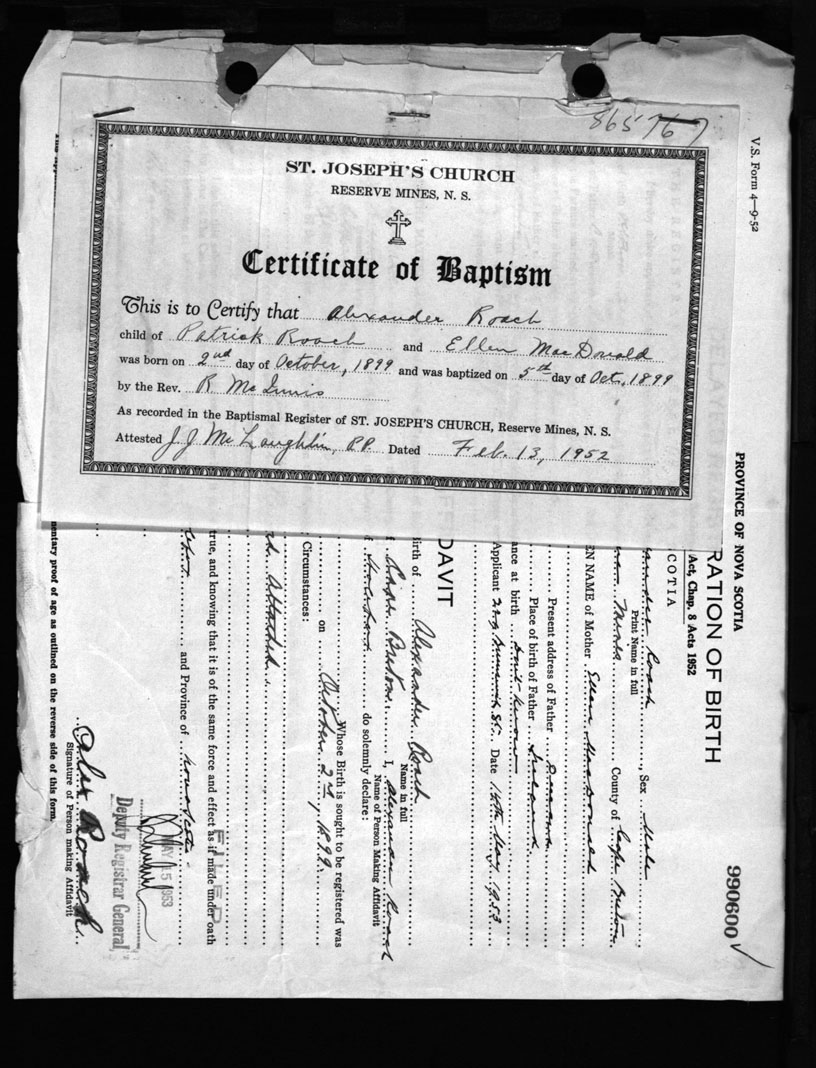 865767
V.S. Form 4—9-52
ST. JOSEPH'S CHURCH
RESERVE MINES, N. S.
Certificate of Baptism
This is to Certify that Alexander Roach
child of Patrick Roach and Ellen MacDonald
was born on 2nd day of October, 1899 and was baptized on 5th day of Oct., 1899
by the Rev. R McInnis
As recorded in the Baptismal Register of ST. JOSEPH'S CHURCH, Reserve Mines, N. S.
Attested J. J. McLaughlin, P.P. Dated Feb. 13, 1952
990600
PROVINCE OF NOVA SCOTIA
RATION OF BIRTH
Act, Chap. 8 Acts 1952
COTIA
Roach, Sex Male
Print Name in full
Mines County of Cape Breton
EN NAME of Mother Ellen MacDonald
Present address of Father
Place of birth of Father
ance at birth
Applicant Date 14th May 1953
DAVIT
Birth of Alexander Roach
Name in full
Cape Breton I, Alexander Roach
Name of Person Making Affidavit
do solemnly declare:
Whose Birth is sought to be registered was
on October 2nd, 1899.
Circumstances:
Attached
true, and knowing that it is of the same force and effect as if made under oath
FILED
and Province of Nova Scotia
MAY 15 1953
Deputy Registrar General
Alex Roach
Signature of Person making Affidavit
mentary proof of age as outlined on the reverse side of this form.